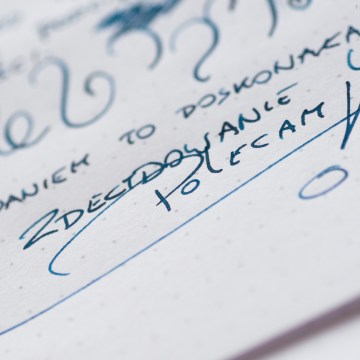 DANIEM TO DOSKONAŁA
ZDECYDOWANIE
POLECAM